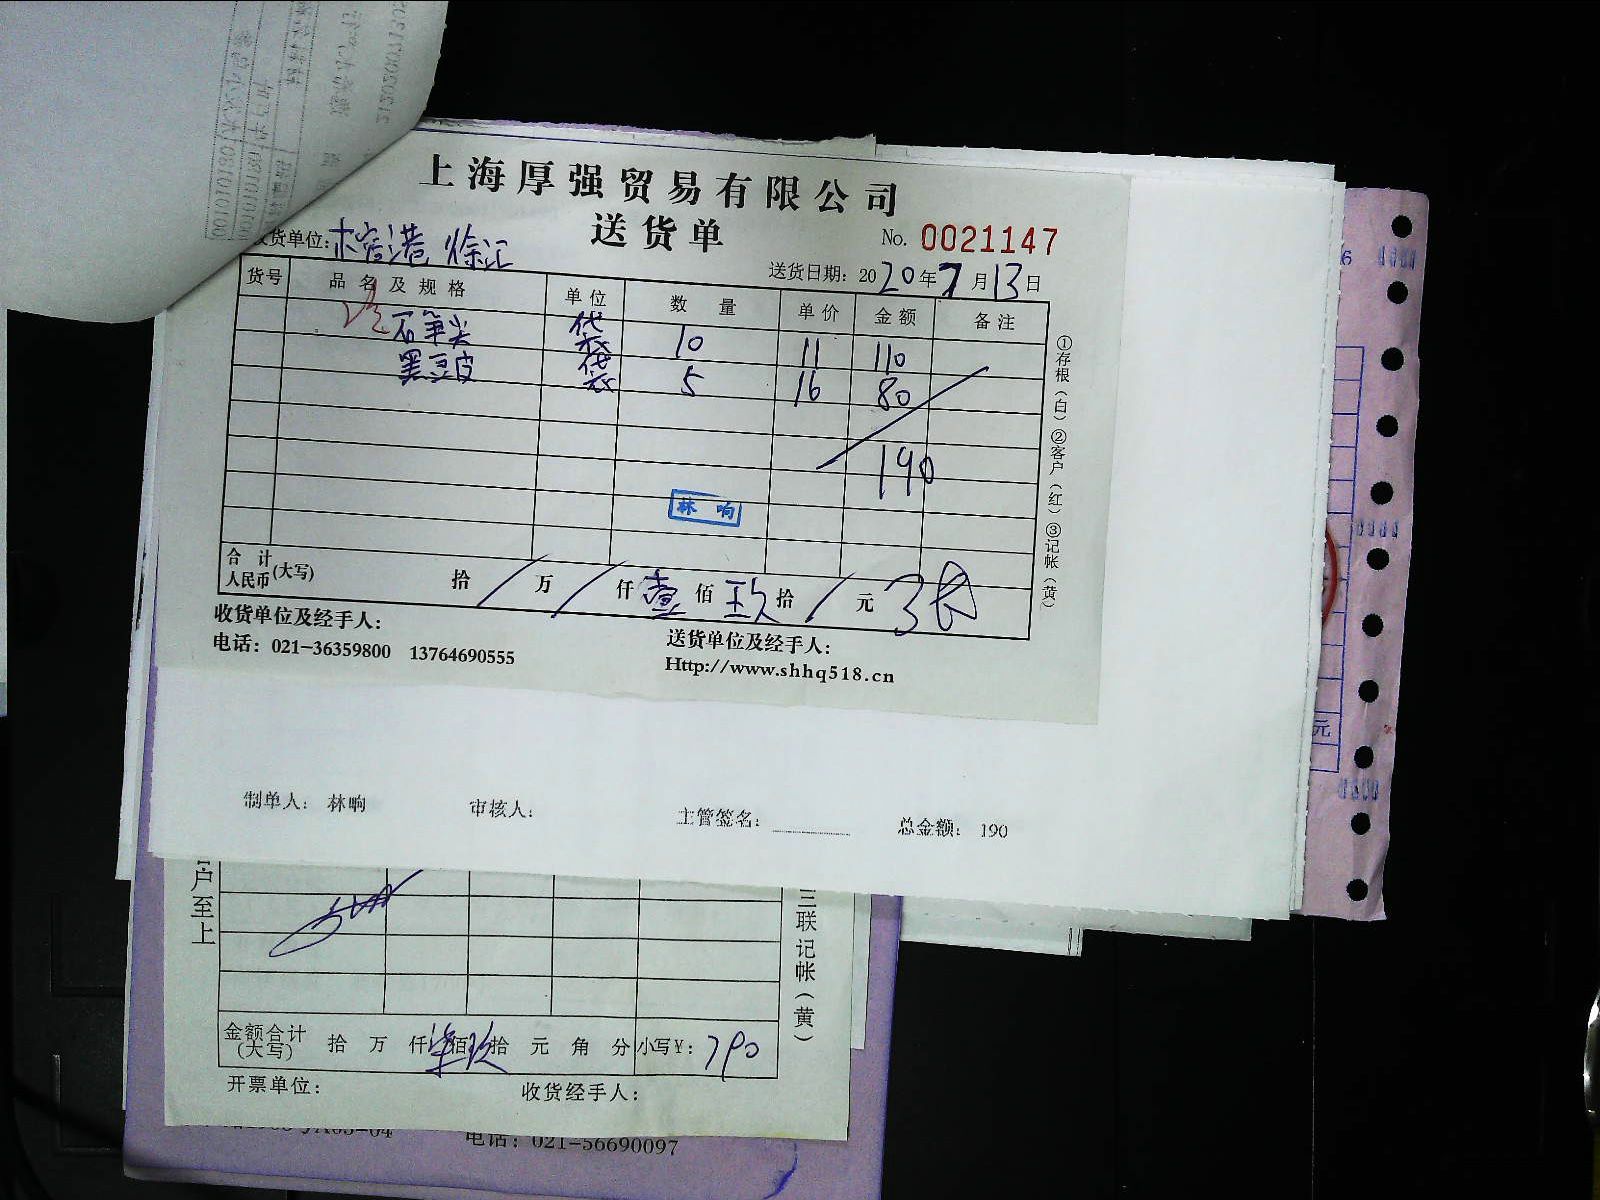 上海厚强贸易有限公司
送货单
No. 0021147
收货单位：徐汇
送货日期：2020年7月13日
货号 品名及规格 单位 数量 单价 金额 备注
石笋尖 袋 10 11 110
黑豆皮 袋 5 16 80
190
林 响
合计 人民币(大写) 拾 / 万 / 仟 壹 佰 玖 拾 / 元
收货单位及经手人：
送货单位及经手人：
电话：021-36359800 13764690555
Http://www.shhq518.cn
①存根（白）②客户（红）③记帐（黄）
制单人： 林响 审核人： 主管签名： 总金额： 190
户至上
三联记帐（黄）
金额合计(大写) 拾 万 仟 佰 玖 拾 元 角 分 小写¥：790
开票单位： 收货经手人：
电话：021-56690097
元